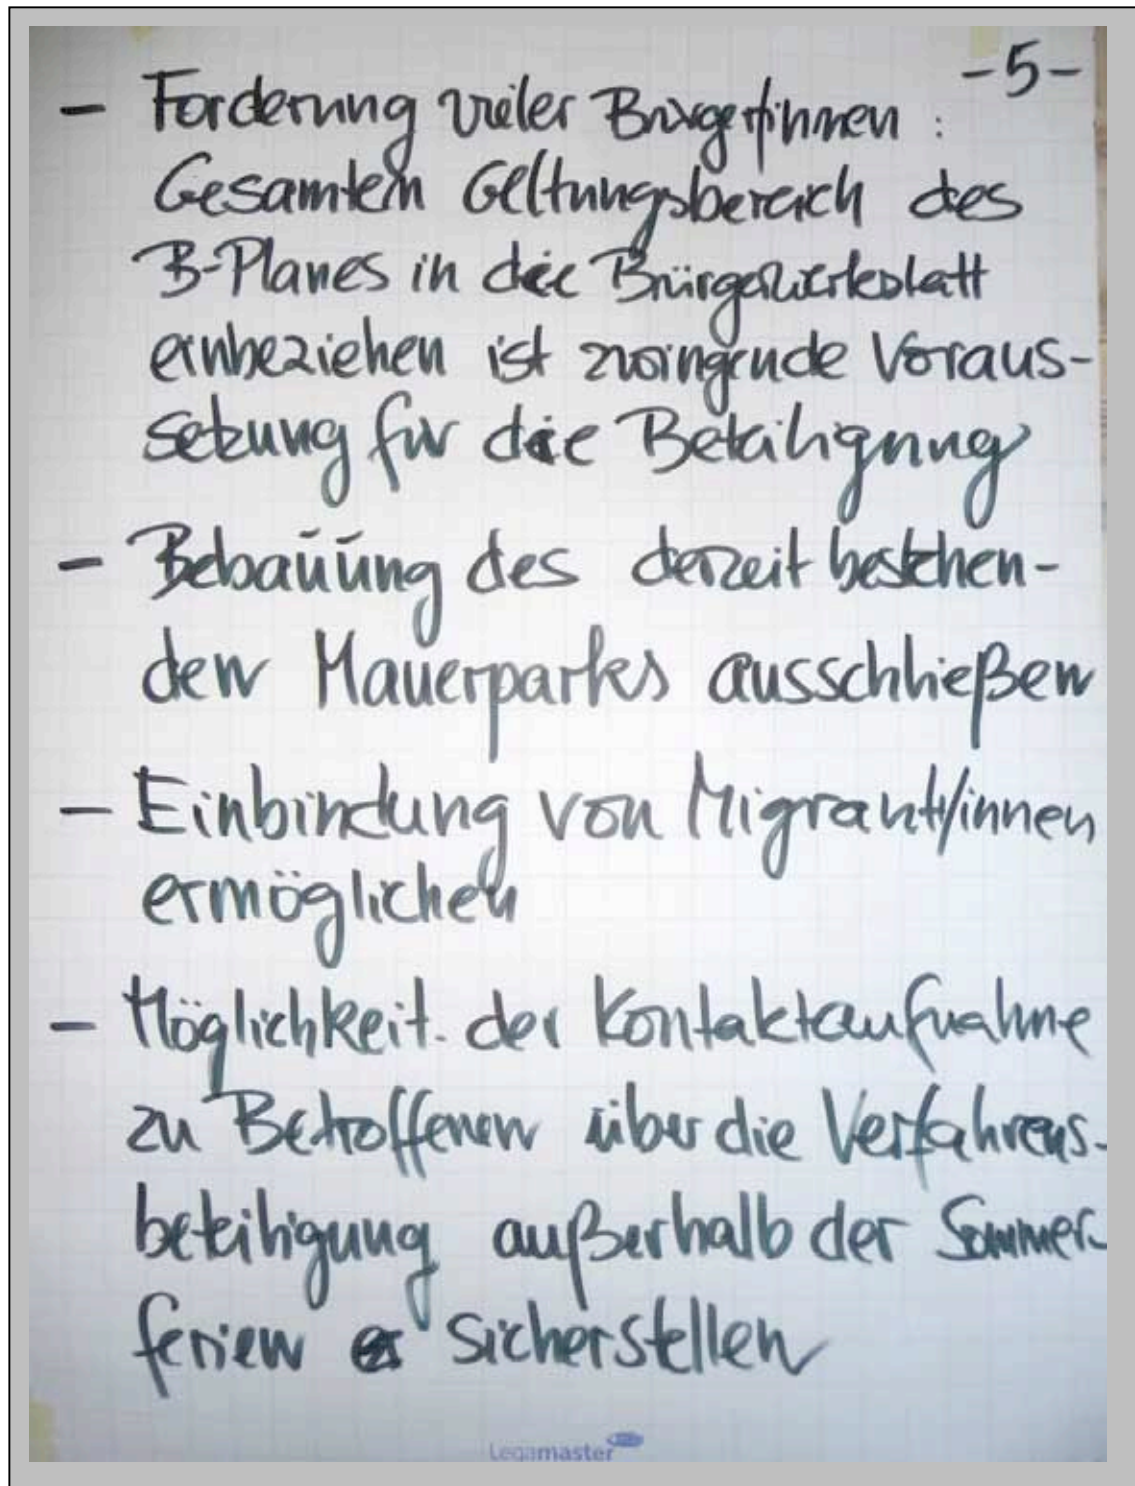 -5-
- Forderung vieler Bürger/innen :
Gesamten Geltungsbereich des
B-Planes in die Bürgerwerkstatt
einbeziehen ist zwingende Voraus-
setzung für die Beteiligung
- Bebauung des derzeit bestehen-
den Mauerparks ausschließen
- Einbindung von Migrant/innen
ermöglichen
- Möglichkeit der Kontaktaufnahme
zu Betroffenen über die Verfahrens-
beteiligung außerhalb der Sommer-
ferien sicherstellen
Legamaster